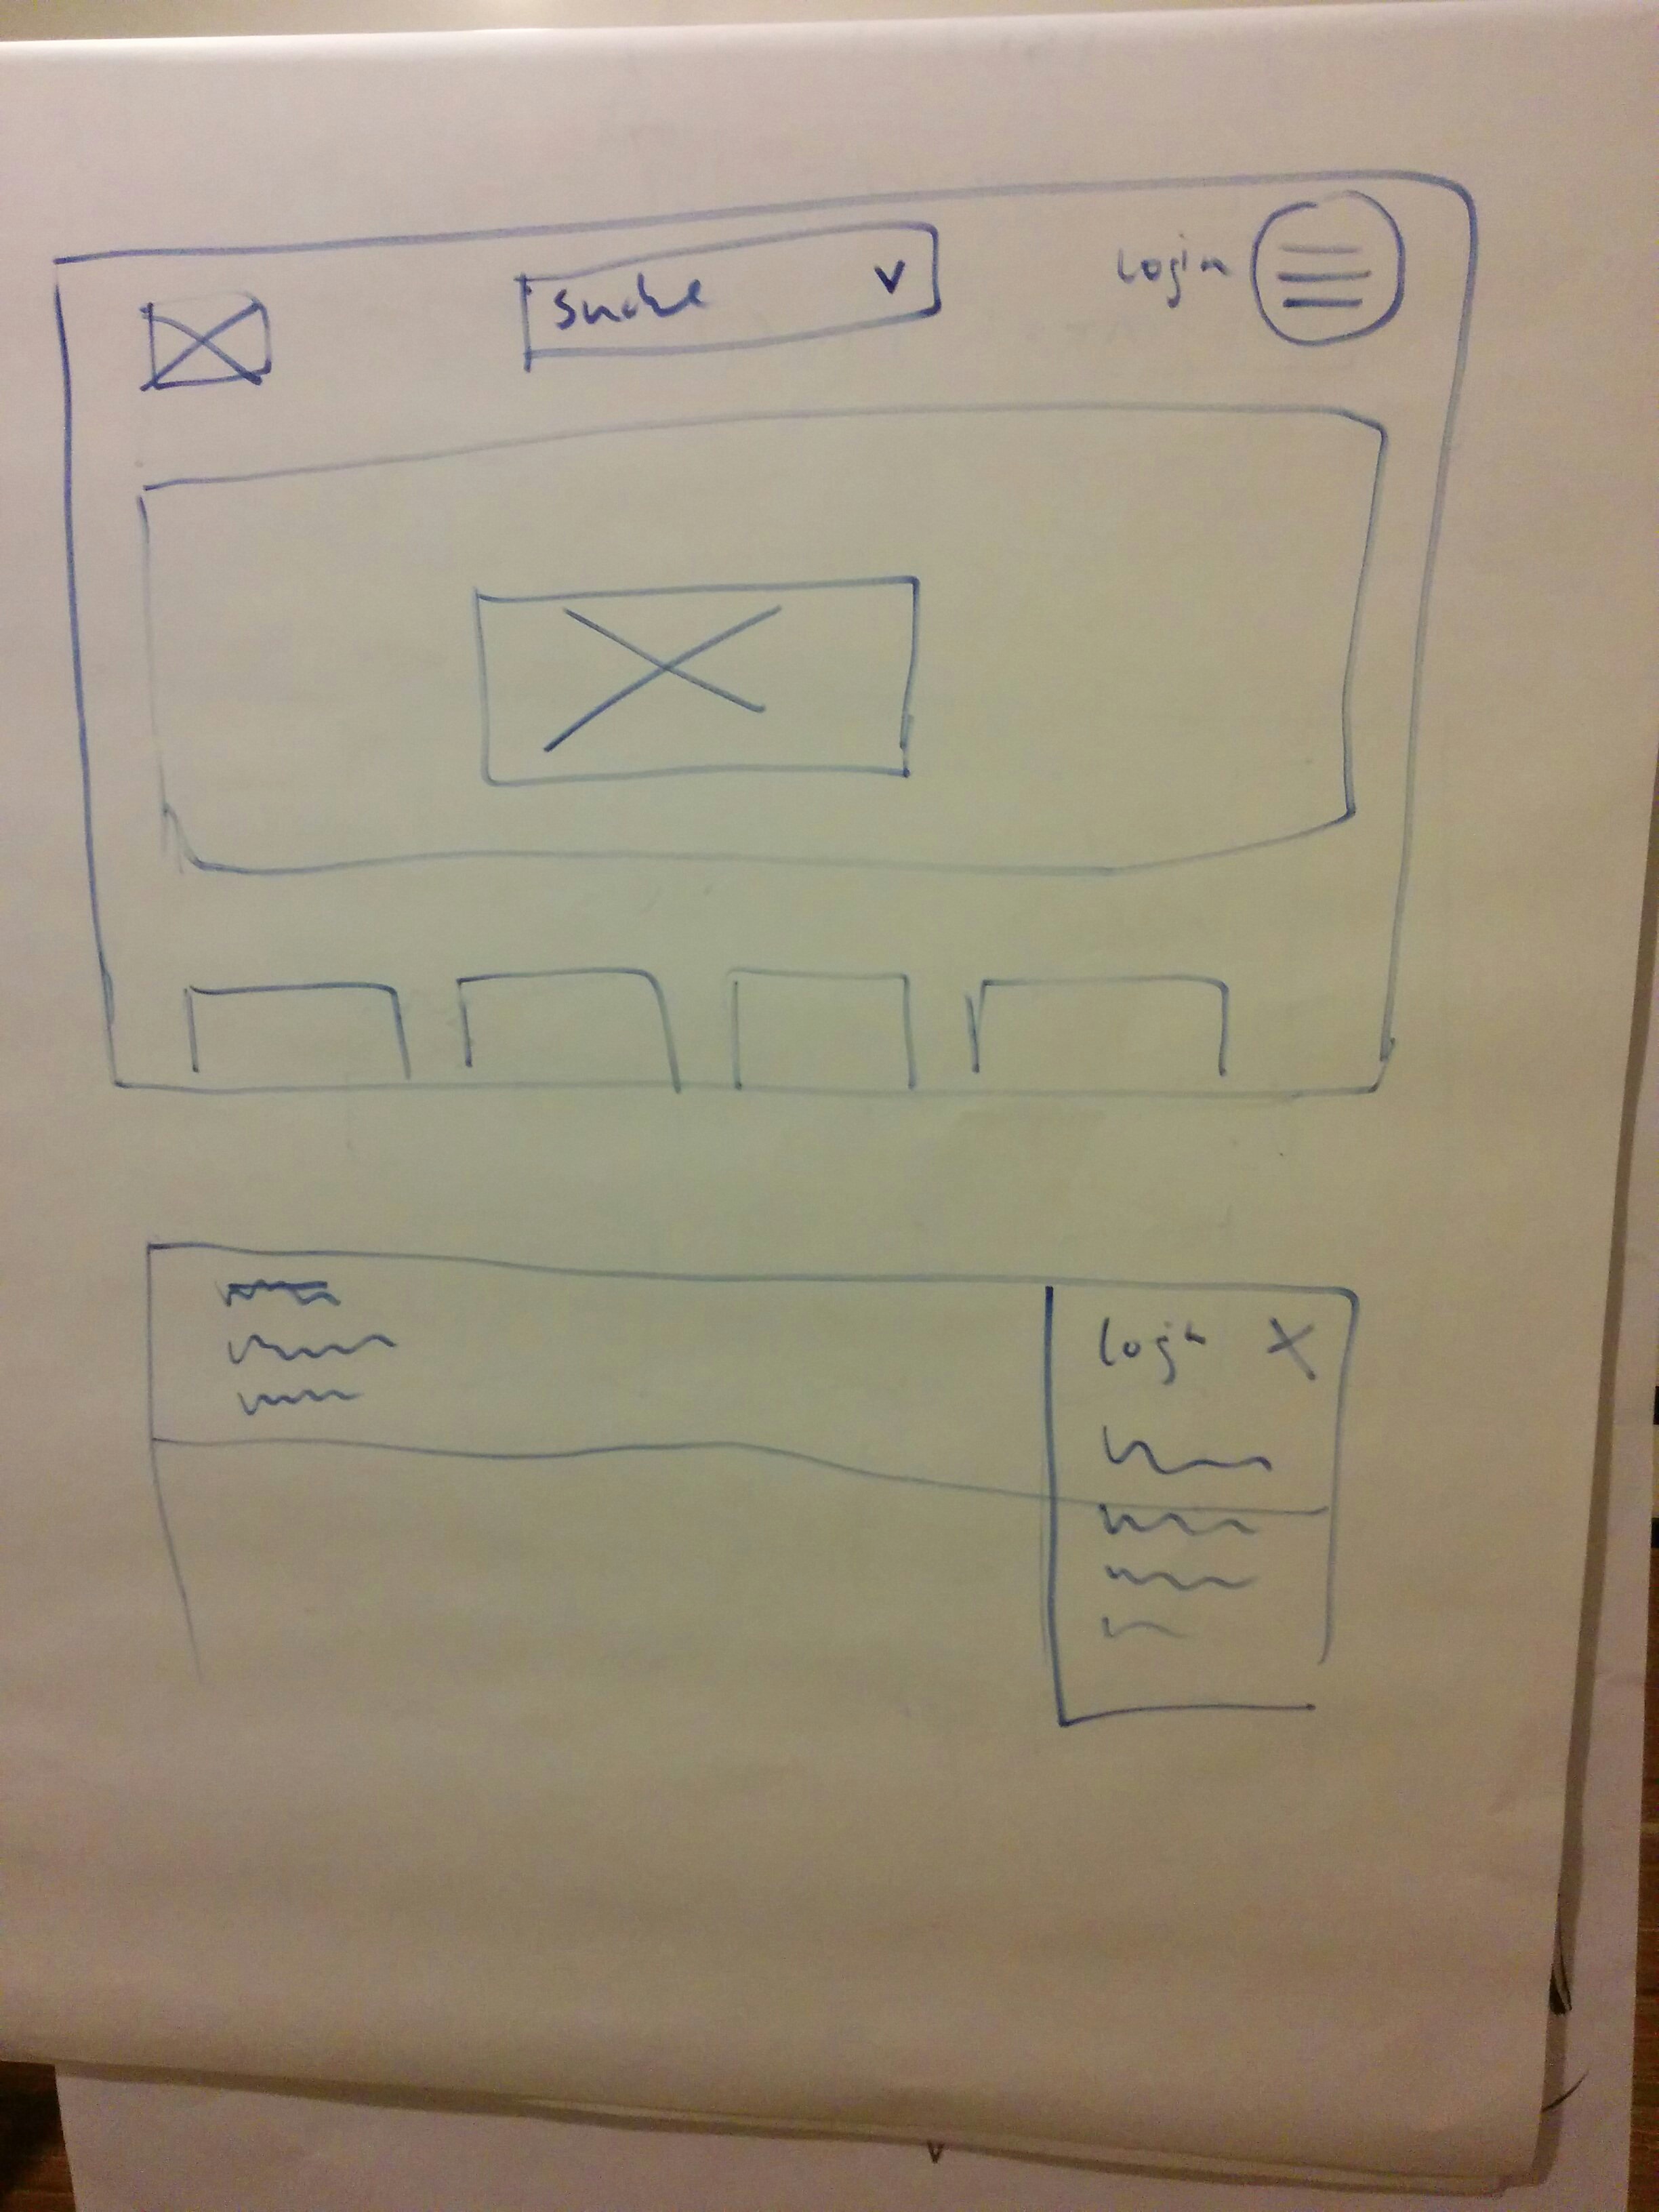 Suche v
Login
Login X